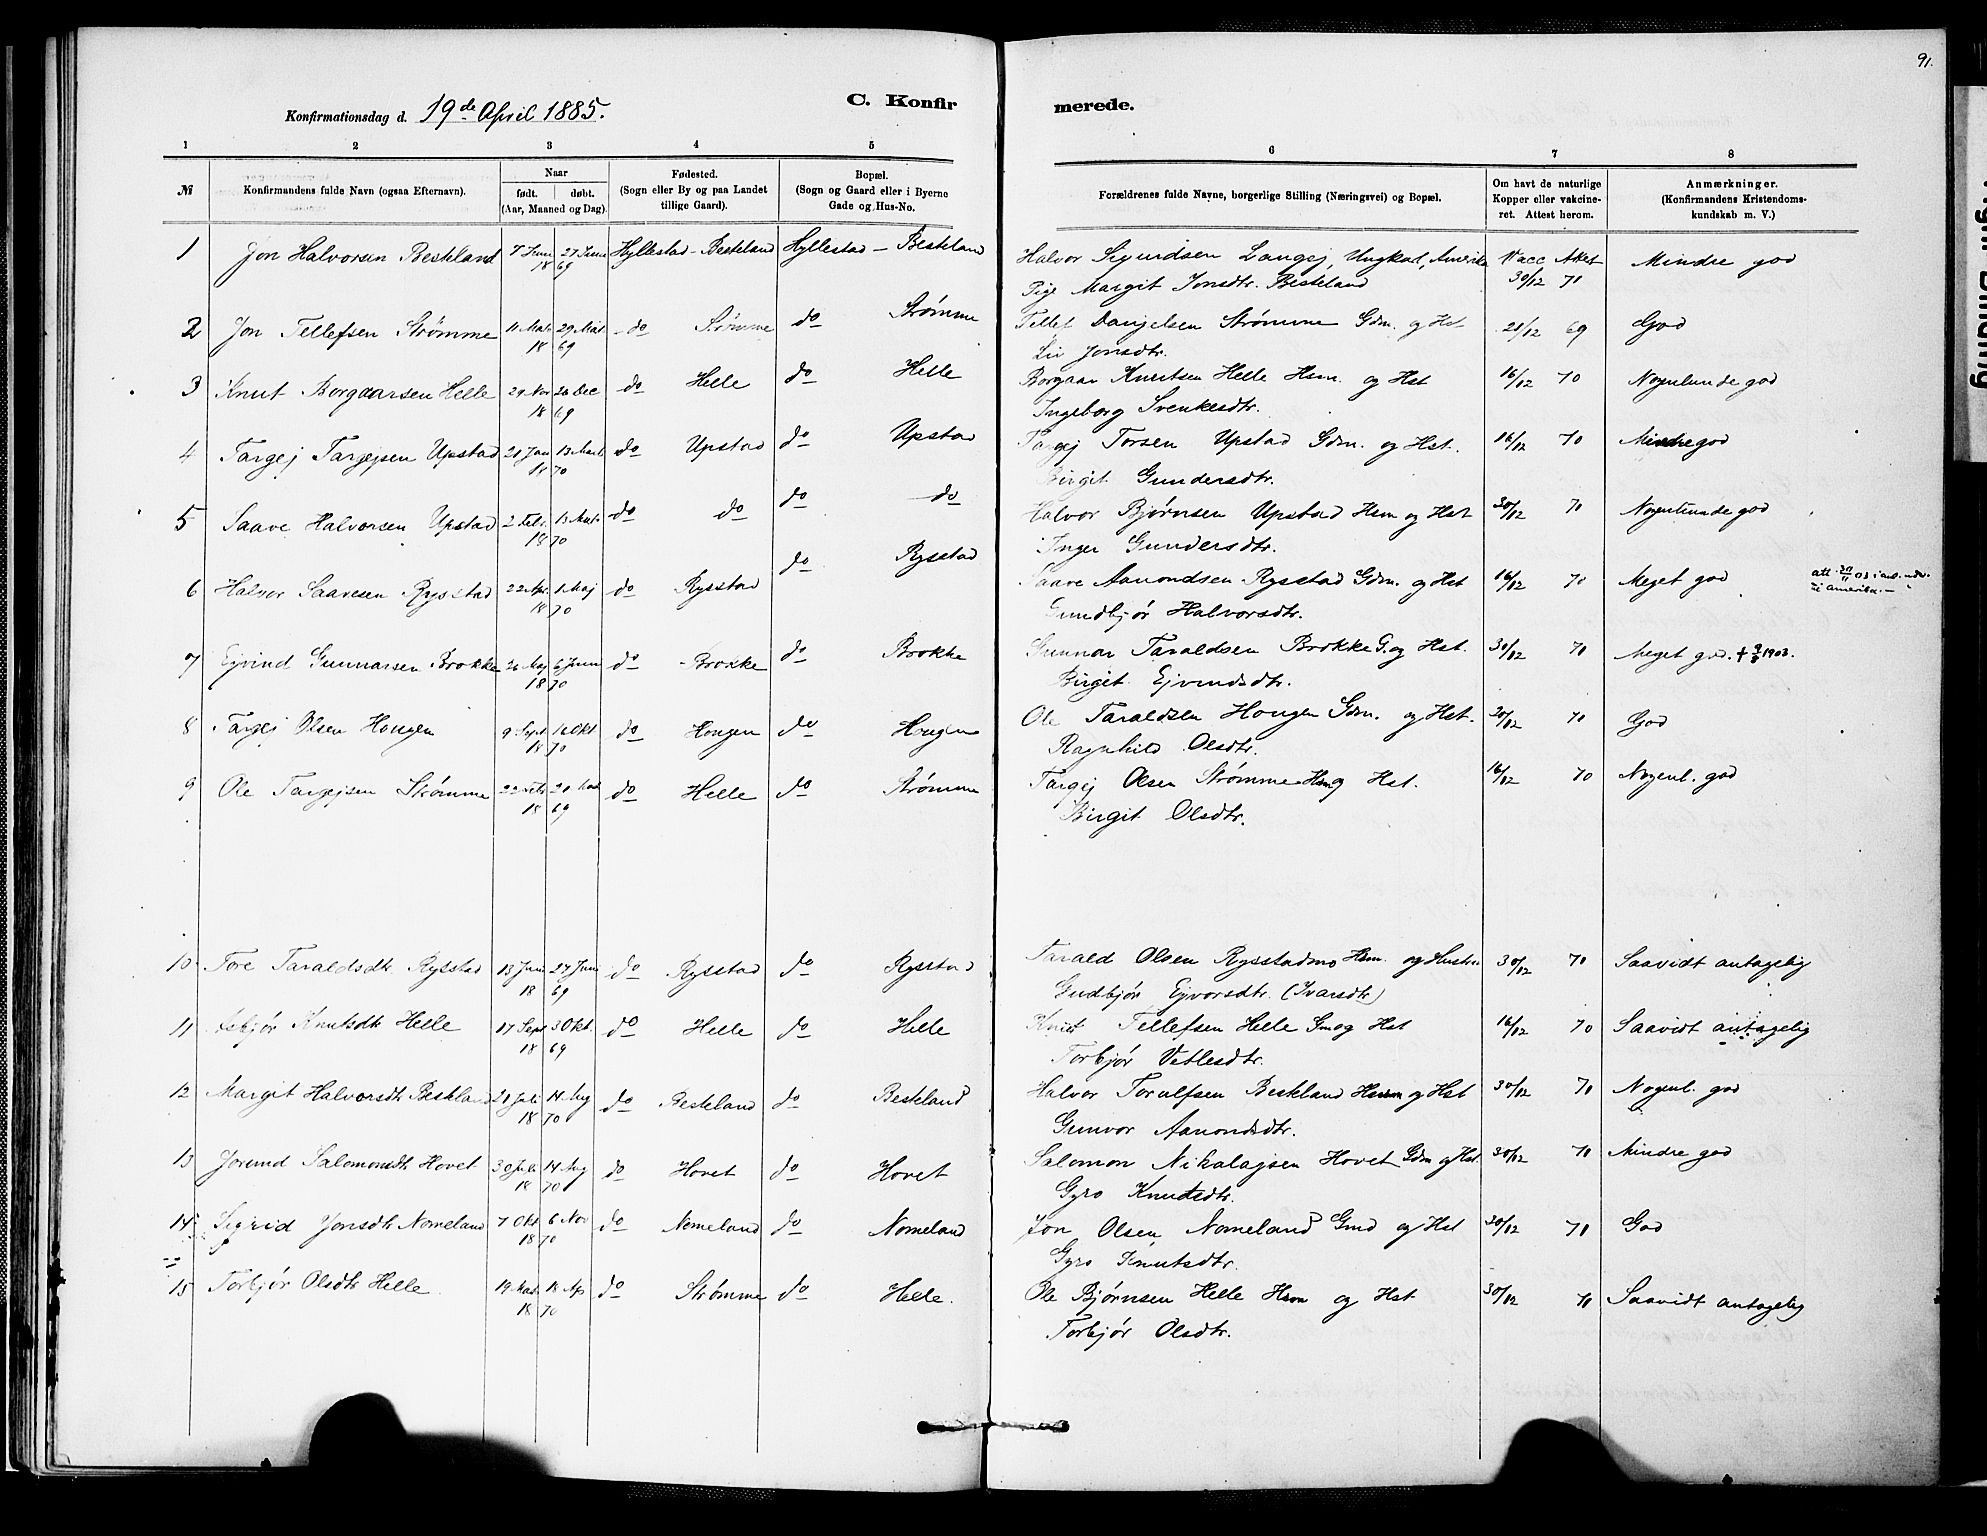 91.
Konfirmationsdag d. 19de April 1885.
C. Konfir
merede.
1 2 3 4 5 6 7 8
№
Konfirmandens fulde Navn (ogsaa Efternavn).
Naar
født. døbt.
(Aar, Maaned og Dag).
Fødested.
(Sogn eller By og paa Landet
tillige Gaard).
Bopæl.
(Sogn og Gaard eller i Byerne
Gade og Hus-No.
Forældrenes fulde Navne, borgerlige Stilling (Næringsvei) og Bopæl.
Om havt de naturlige
Kopper eller vakcine-
ret. Attest herom.
Anmærkninger.
(Konfirmandens Kristendoms-
kundskab m. V.)
1 Jon Halvorsen Beskeland 7 Juni 27 Juni Hyllestad - Beskeland Hyllestad - Beskeland Halvor Sigurdsen Langej, Ungkarl, Amerika Vacc Akest Mindre god
18 69 Pige Margit Jonsdtr. Beskeland 30/12 71
2 Jon Tellefsen Strømme 11 Mai 29 Mai do Strømme do Strømme Tellef Danjelsen Strømme Gdm. og Hst 21/12 69 God
18 69 Liv Jonsdtr.
3 Knut Borgaarsen Helle 29 Nov 26 Dec do Helle do Helle Borgaar Knutsen Helle Hsm. og Hst 16/12 70 Nogenlunde god
18 69 Ingeborg Svenkesdtr.
4 Targej Targejsen Upstad 21 Jan 13 Mart do Upstad do Upstad Targej Torsen Upstad Gdm. og Hst. 16/12 70 Mindre god
18 70 Birgit Gundersdtr.
5 Saave Halvorsen Upstad 2 Feb. 13 Mart do do do do Halvor Bjørnsen Upstad Hsm og Hst 30/12 70 Nogenlunde god
18 70 Inger Gundersdtr.
6 Halvor Saavesen Rysstad 22 Apr. 1 Maj do Rysstad do Rysstad Saave Aanondsen Rysstad Gdm. og Hst 16/12 70 Meget god att. 30/11 03
18 70 Gundbjør Halvorsdtr. til amerika.-
7 Ejvind Gunnarsen Brokke 20 Maj 6 Juni do Brokke do Brokke Gunnar Taraldsen Brokke G. og Hst. 30/12 70 Meget god. † 1903.
18 70 Birgit Ejvindsdtr.
8 Targej Olsen Hougen 9 Sept 16 Okt do Hougen do Hougen Ole Taraldsen Hougen Gdm. og Hst. 20/12 70 God
18 70 Ragnhild Olsdtr.
9 Ole Targejsen Strømme 22 Feb. do Helle do Strømme Targej Olsen Strømme Hsm og Hst. 16/12 70 Nogenl. god
18 69 Birgit Olsdtr.
10 Tore Taraldsdtr Rysstad 13 Juni 27 Juni do Rysstad do Rysstad Tarald Olsen Rysstadmo Hsm. og Hustru 30/12 70 Saavidt antagelig
18 69 Gudbjør Ejvorsdtr. (Ivarsdtr)
11 Asbjør Knutsdtr Helle 17 Sept 3 Okt. do Helle do Helle Knut Tellefsen Helle Gm og Hst 16/12 70 Saavidt antagelig
18 69 Torbjør Vetlesdtr.
12 Margit Halvorsdtr Beskeland 21 Juli 14 Aug do Beskeland do Beskeland Halvor Torulfsen Beskland Hsm og Hst 30/12 70 Nogenl. god
18 70 Gunvor Aanondsdtr.
13 Jorund Salomonsdtr Hovet 30 Juli 14 Aug do Hovet do Hovet Salomon Nikolajsen Hovet Gdm og Hst. 30/12 70 Mindre god
18 70 Gyro Knutsdtr.
14 Sigrid Jonsdtr Nomeland 7 Okt 6 Nov do Nomeland do Nomeland Jon Olsen Nomeland Gmd og Hst 30/12 70 God
18 70 Gyro Knutsdtr.
15 Torbjør Olsdtr Helle 19 Mar. 18 Ap do Strømme do Helle. Ole Bjørnsen Helle Hsm og Hst 30/12 70 Saavidt antagelig
18 70 Torbjør Olsdtr.